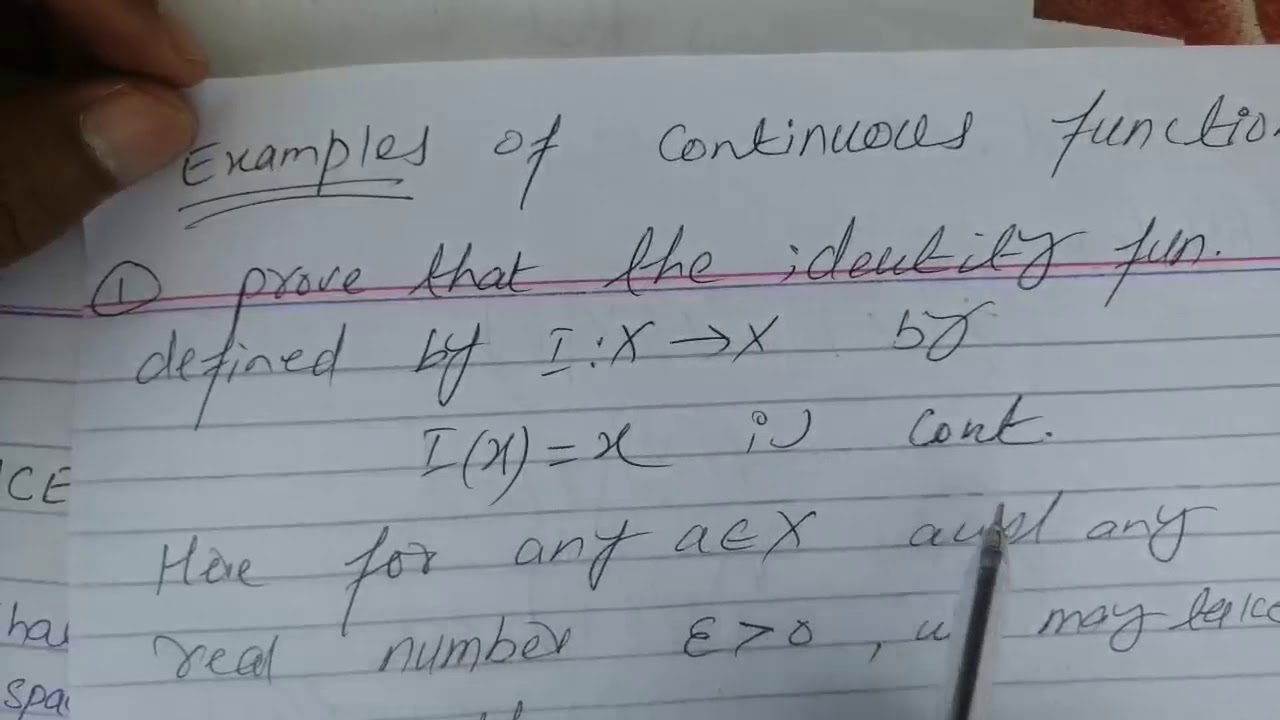 Examples of continuous functio
① prove that the identity fun.
defined by I : X → X by
I(x) = x is cont.
Here for any a ∈ X and any
real number ε > 0, may take
CE
ha
spa